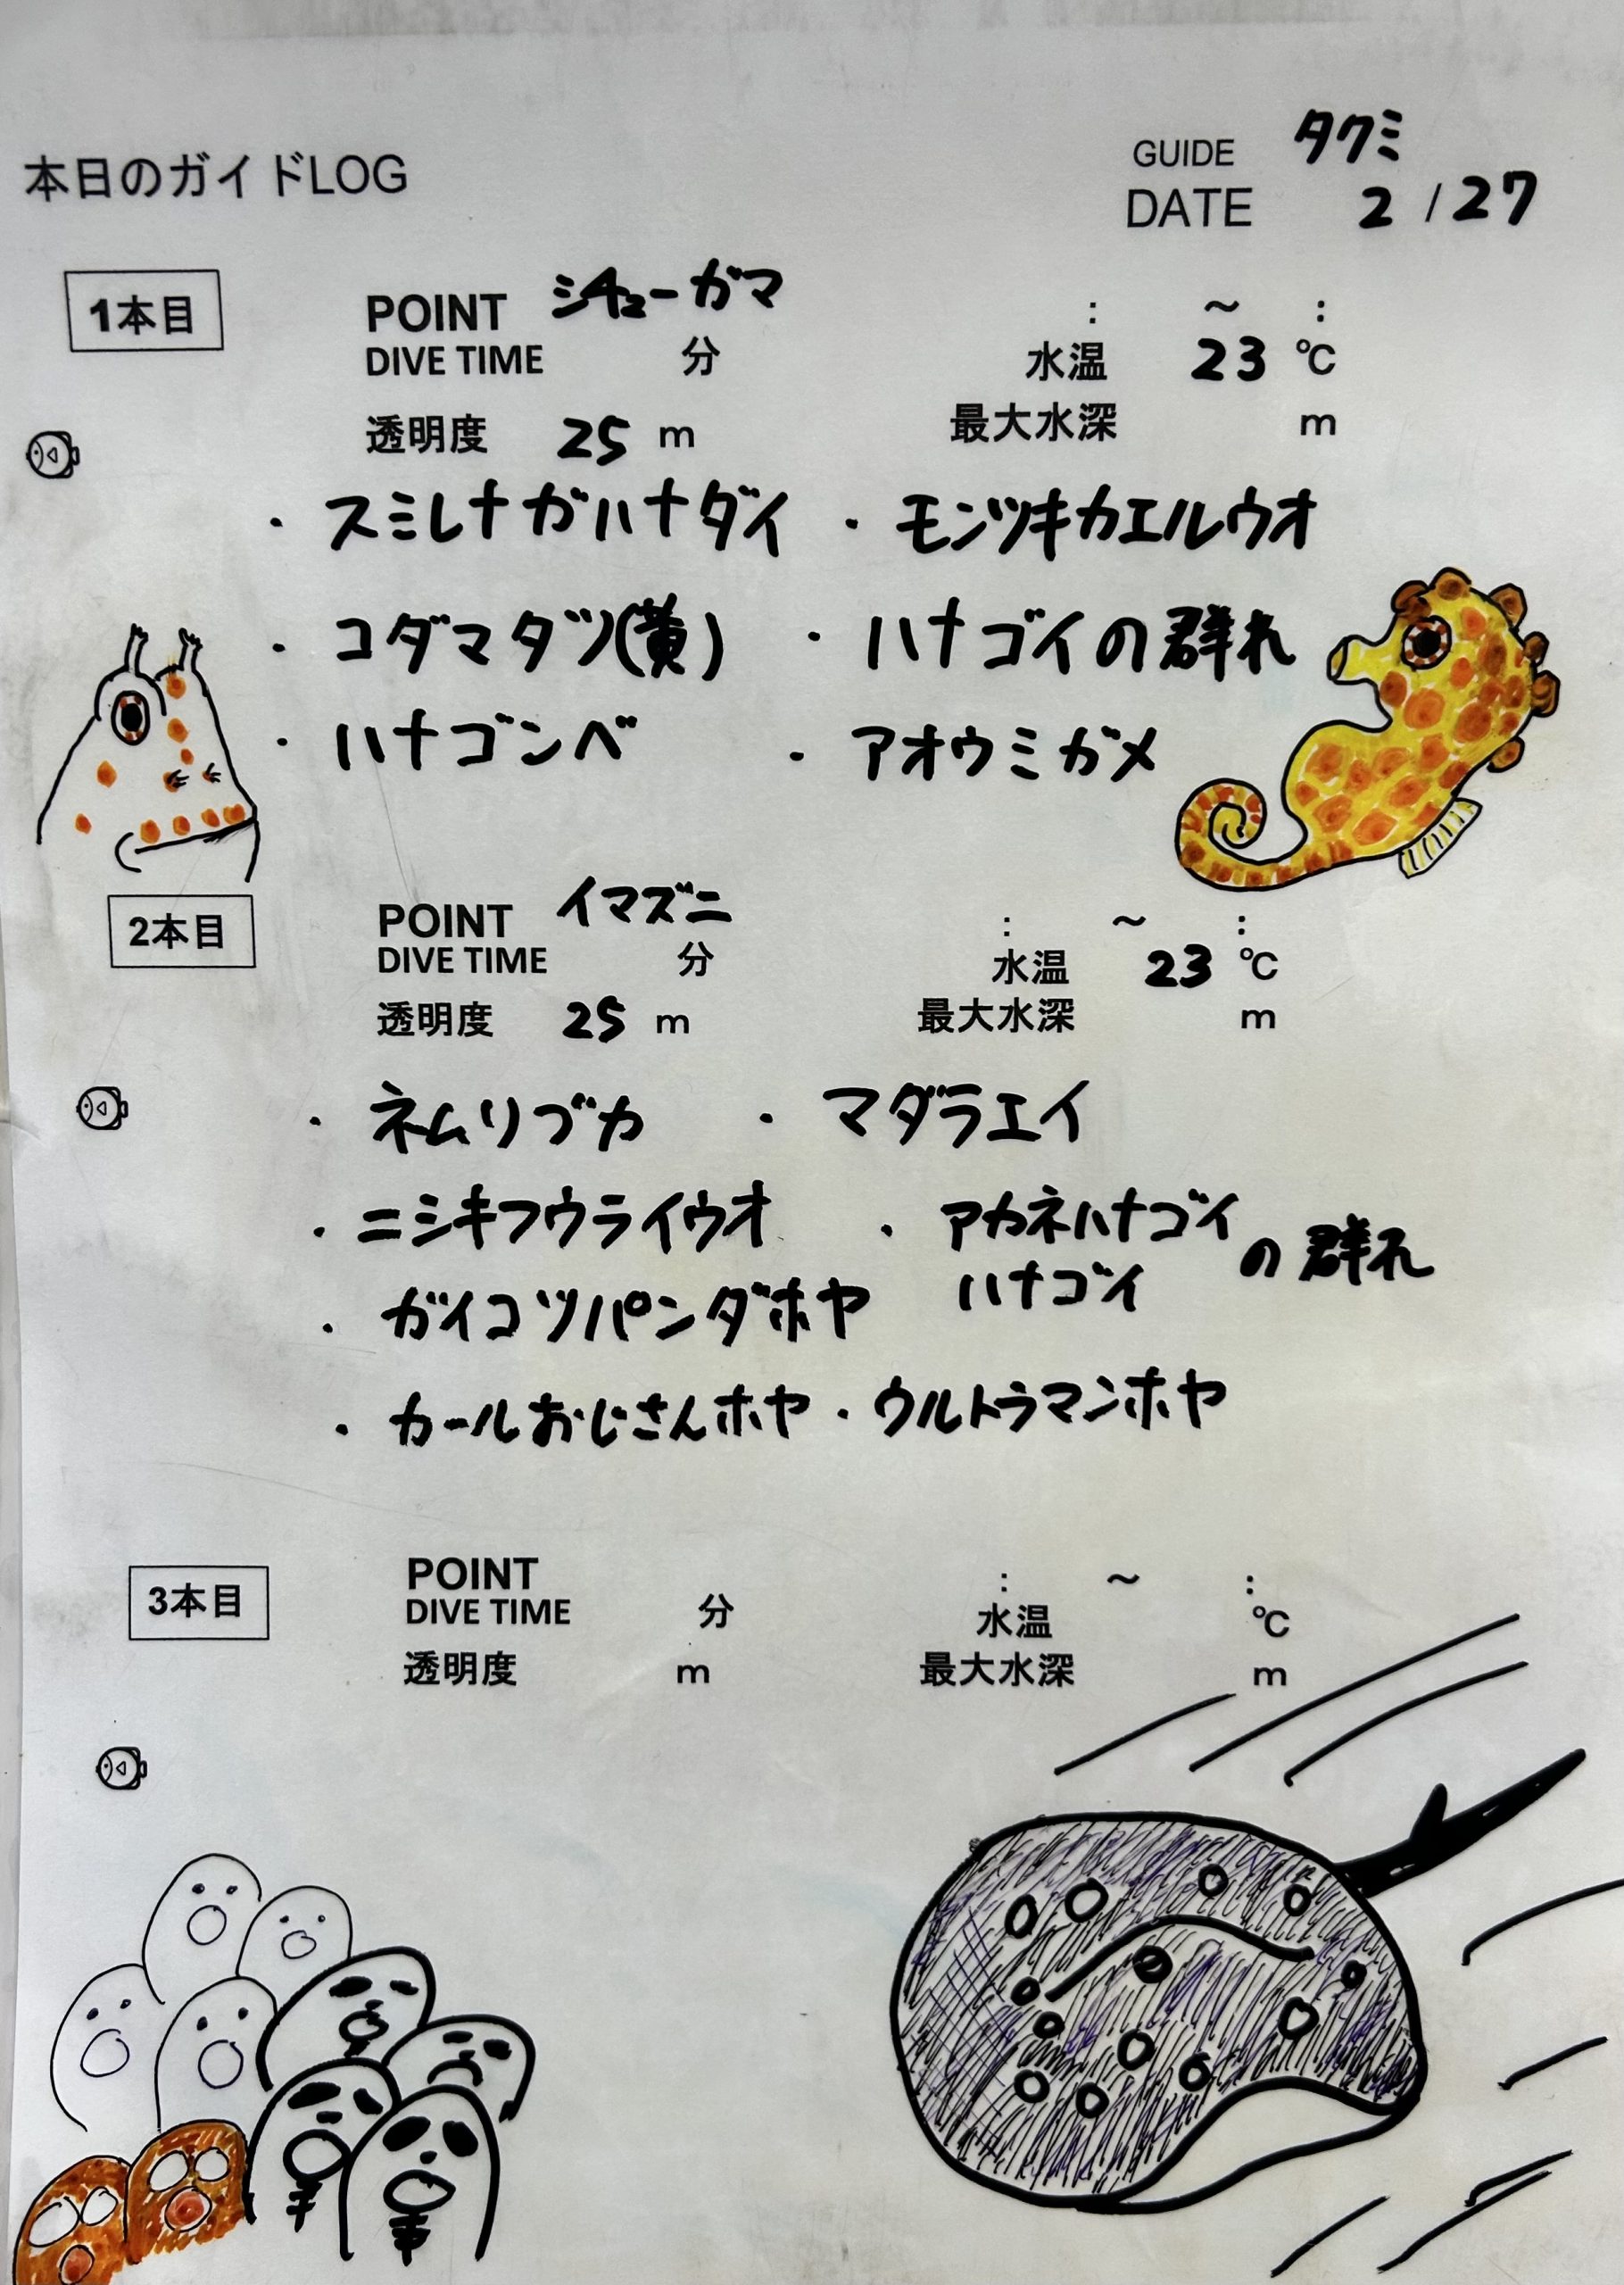 本日のガイドLOG
GUIDE タクミ
DATE 2/27
1本目
POINT シチューガマ : ～ :
DIVE TIME 分 水温 23 ℃
透明度 25 m 最大水深 m
・スミレナガハナダイ ・モンツキカエルウオ
・コダマタツ(黄) ・ハナゴイの群れ
・ハナゴンベ ・アオウミガメ
2本目
POINT イマズニ : ～ :
DIVE TIME 分 水温 23 ℃
透明度 25 m 最大水深 m
・ネムリブカ ・マダラエイ
・ニシキフウライウオ ・アカネハナゴイ
ハナゴイ の群れ
・ガイコツパンダホヤ
・カールおじさんホヤ ・ウルトラマンホヤ
3本目
POINT : ～ :
DIVE TIME 分 水温 ℃
透明度 m 最大水深 m